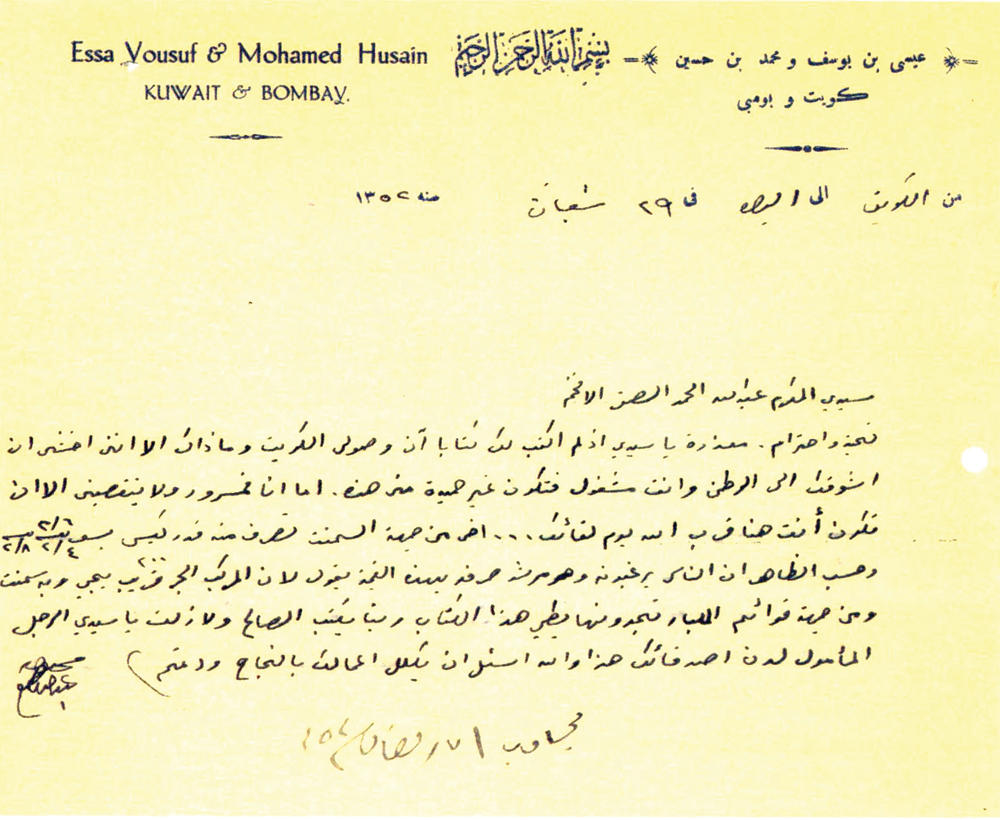 Essa Yousuf & Mohamed Husain
KUWAIT & BOMBAY.
بسم الله الرحمن الرحيم
عيسى بن يوسف و محمد بن حسين
كويت و بومبي
من الكويت الى البصره في ٢٩ شعبان سنه ١٣٥٢
سيدي المكرم عبدالله الحمد الصقر الافخم
تحية واحترام. معذرة يا سيدي اذ لم اكتب لك كتابا آن وصولى الكويت وما ذاك الا اننى اخشى ان
اشوقك الى الوطن وانت مشغول فتكون غير حميدة منى هذه. اما انا فمسرور ولا ينقصنى الا ان
تكون أنت هنا قرب الله يوم لقائك... اخى من جهة السمنت تصرف منه قدر كيس بسعر
وحسب الظاهر ان الناس يرغبونه وهو مرشد صرفه بهذه القيمة يقول لان المركب الجر قريب يجي وبه سمنت
ومن جهة قوائم المليبار تجدونها بطي هذا الكتاب ربنا يكتب الصالح ولا زلت يا سيدي الرجل
المأمول لدن اصدقائك هذا والله اسئل ان يكلل اعمالك بالنجاح ودمتم
مجاوب ١٧ رمضان